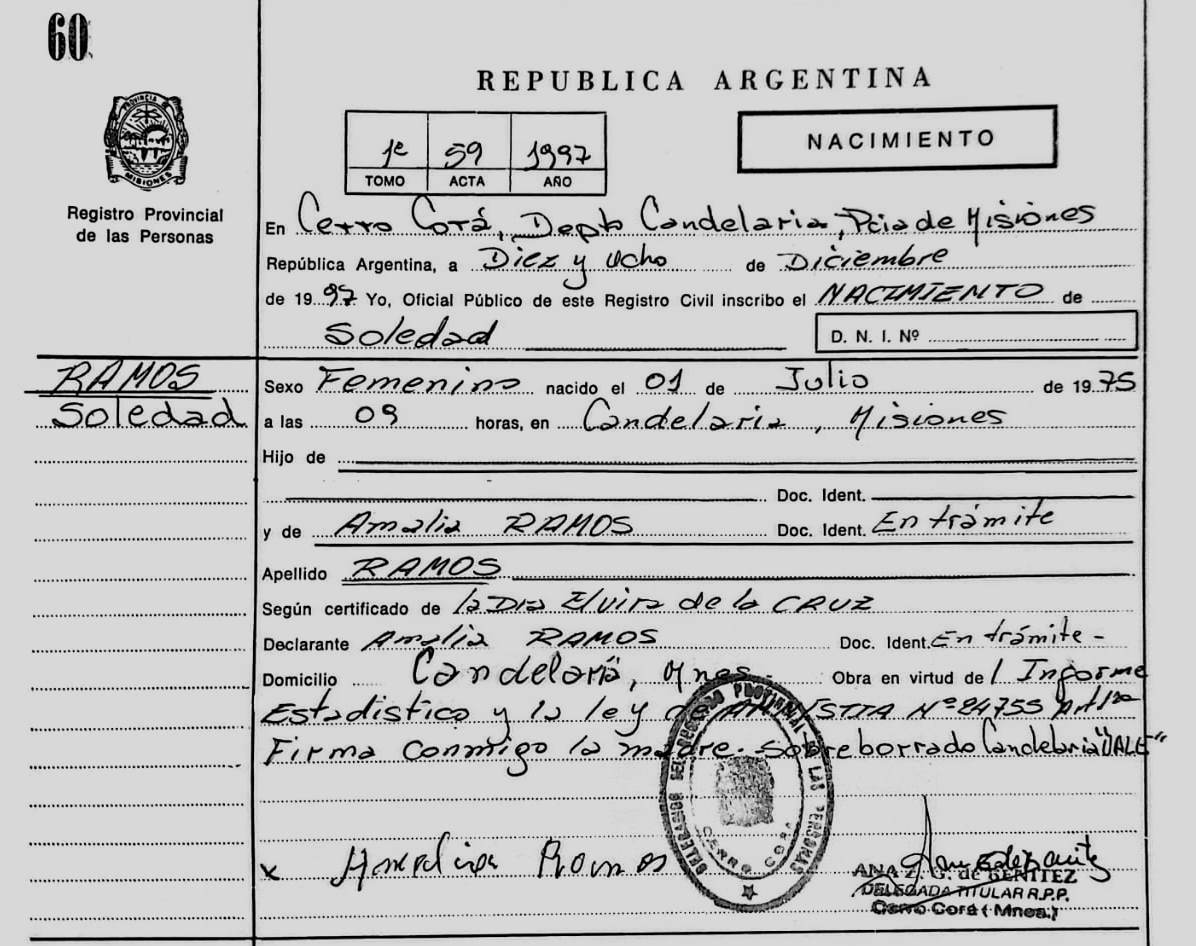 60
REPUBLICA ARGENTINA
PROVINCIA
MISIONES
1º 59 1997
TOMO ACTA AÑO
NACIMIENTO
Registro Provincial
de las Personas
En Cerro Corá, Depto Candelaria, Pcia de Misiones
República Argentina, a Diez y Ocho de Diciembre
de 1997 Yo, Oficial Público de este Registro Civil inscribo el NACIMIENTO de
Soledad
D. N. I. Nº
RAMOS
Soledad
Sexo Femenino nacido el 01 de Julio de 1975
a las 09 horas, en Candelaria, Misiones
Hijo de
Doc. Ident.
y de Amalia RAMOS Doc. Ident. En trámite
Apellido RAMOS
Según certificado de la Dra Elvira de la CRUZ
Declarante Amalia RAMOS Doc. Ident. En trámite -
Domicilio Candelaria, Mnes Obra en virtud de / Informe
Estadistico y la ley de AMNISTIA Nº 24755
Firma conmigo la madre. sobreborrado Candelaria "VALE"
DELEGACION DEL REGISTRO PROVINCIAL DE LAS PERSONAS
CERRO CORA
x Amalia Ramos
ANA Z. G. de BENITEZ
DELEGADA TITULAR R.P.P.
Cerro Corá (Mnes.)